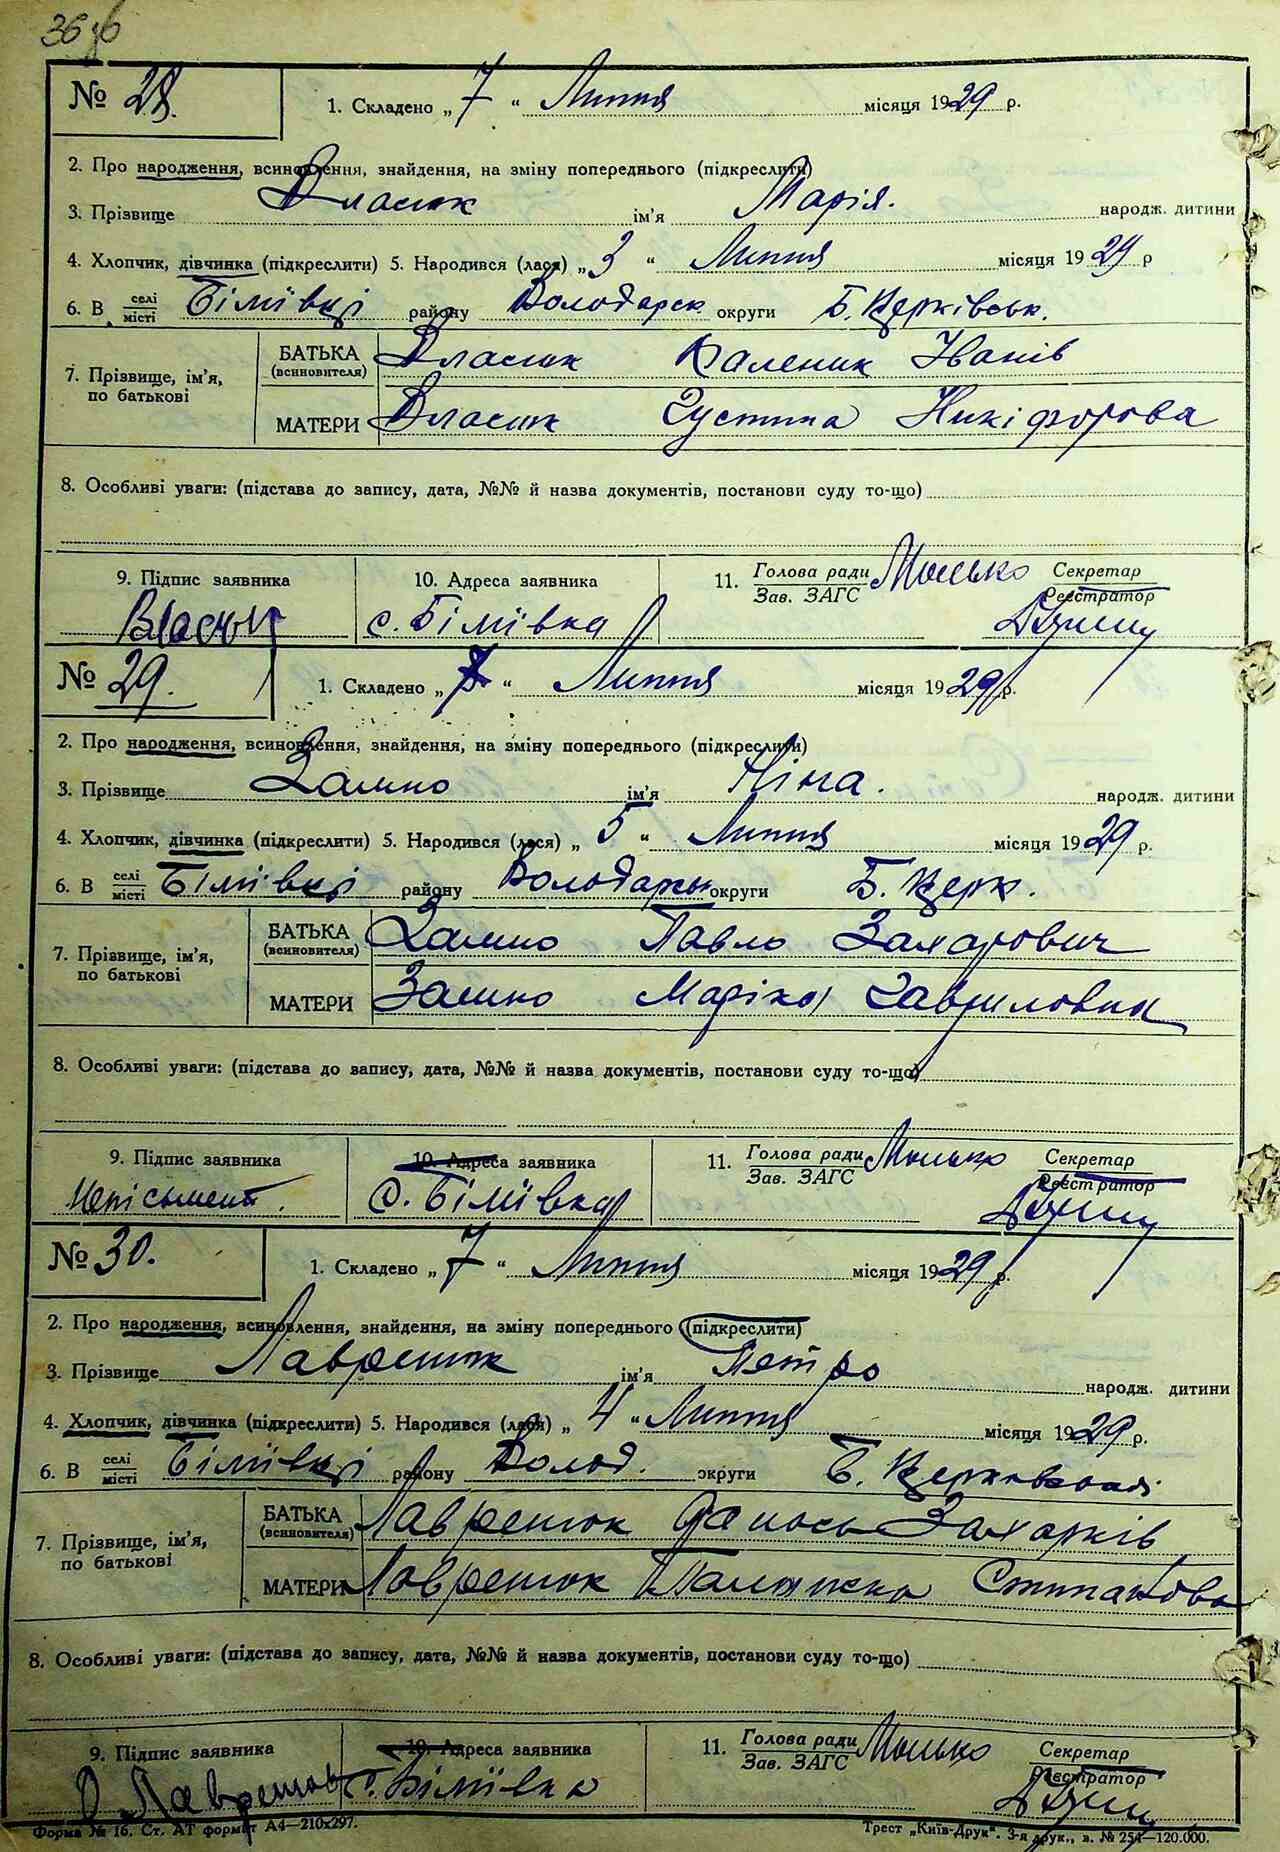 № 28.
1. Складено „ 7 “ Липня місяця 1929 р.
2. Про народження, всиновлення, знайдення, на зміну попереднього (підкреслити)
3. Прізвище Власюк ім'я Марія. народж. дитини
4. Хлопчик, дівчинка (підкреслити) 5. Народився (лася) „ 3 “ Липня місяця 1929 р
6. В селі місті Біліївці району Володарск округи Б. Церківськ.
7. Прізвище, ім'я, по батькові
БАТЬКА (всиновителя) Власюк Каленик Іванів
МАТЕРИ Власюк Устина Никіфорова
8. Особливі уваги: (підстава до запису, дата, №№ й назва документів, постанови суду то-що)
9. Підпис заявника 10. Адреса заявника 11. Голова ради Зав. ЗАГС Секретар Реєстратор
Власюк с. Біліївка
№ 29.
1. Складено „ 7 “ Липня місяця 1929 р.
2. Про народження, всиновлення, знайдення, на зміну попереднього (підкреслити)
3. Прізвище ім'я Ніна. народж. дитини
4. Хлопчик, дівчинка (підкреслити) 5. Народився (лася) „ 5 “ Липня місяця 1929 р.
6. В селі місті Біліївці району Володарськ округи Б. Церк.
7. Прізвище, ім'я, по батькові
БАТЬКА (всиновителя) Павло Захарович
МАТЕРИ Гавриловна
8. Особливі уваги: (підстава до запису, дата, №№ й назва документів, постанови суду то-що)
9. Підпис заявника 10. Адреса заявника 11. Голова ради Зав. ЗАГС Секретар Реєстратор
с. Біліївка
№ 30.
1. Складено „ 7 “ Липня місяця 1929 р.
2. Про народження, всиновлення, знайдення, на зміну попереднього (підкреслити)
3. Прізвище Лавренюк ім'я Петро народж. дитини
4. Хлопчик, дівчинка (підкреслити) 5. Народився (лася) „ 4 “ Липня місяця 1929 р.
6. В селі місті Біліївці району Волод. округи
7. Прізвище, ім'я, по батькові
БАТЬКА (всиновителя) Лавренюк Захарків
МАТЕРИ Лавренюк Степанова
8. Особливі уваги: (підстава до запису, дата, №№ й назва документів, постанови суду то-що)
9. Підпис заявника 10. Адреса заявника 11. Голова ради Зав. ЗАГС Секретар Реєстратор
с. Біліївка
Форма № 16. Ст. АТ формат А4—210x297. Трест „Київ-Друк“. 3-я друк., з. № 254—120.000.